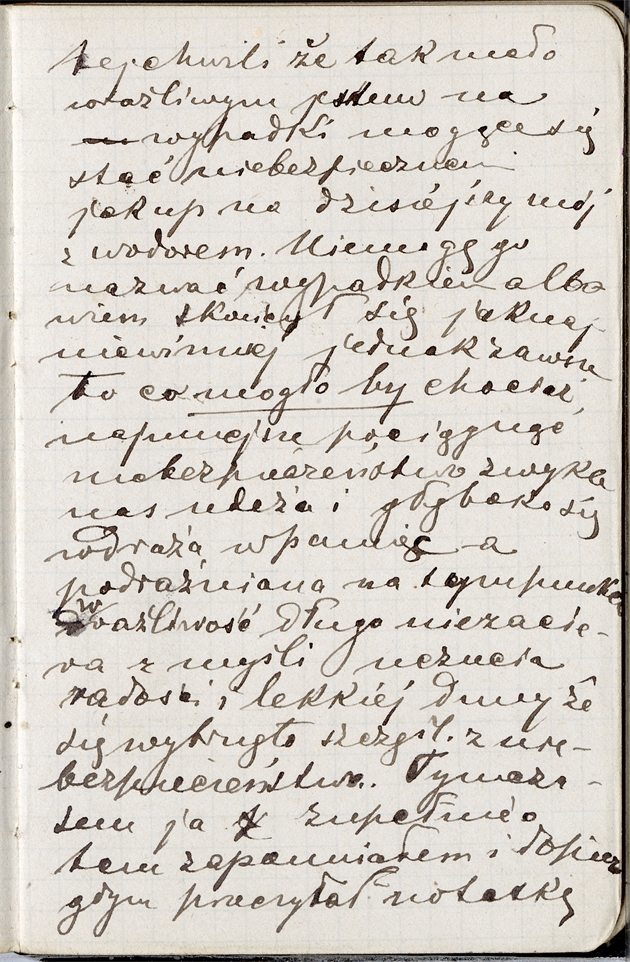 tej chwili że tak mało
wrażliwym jestem na
wypadki mogące się
stać niebezpiecznemi
jak up na dzisiejszy mój
z wodorem. Niemogę go
nazwać wypadkiem albo
wiem skończył się jaknaj-
niewinniej jednak zawsze
to co mogło by chociaż
najmniejsze pociągnąć
niebezpieczeństwo zwykle
nas udeża i głęboko się
wdraża w pamięć a
podrażniana na tym punkcie
wrażliwość długo niezacie-
ra z myśli uczucia
radości i lekkiej dumy że
się wybrnęło szczęśl. z nie-
bezpieczeństwa. Tymcza-
sem ja zupełnie o
tem zapomniałem i dopiero
gdym przeczytał notatkę